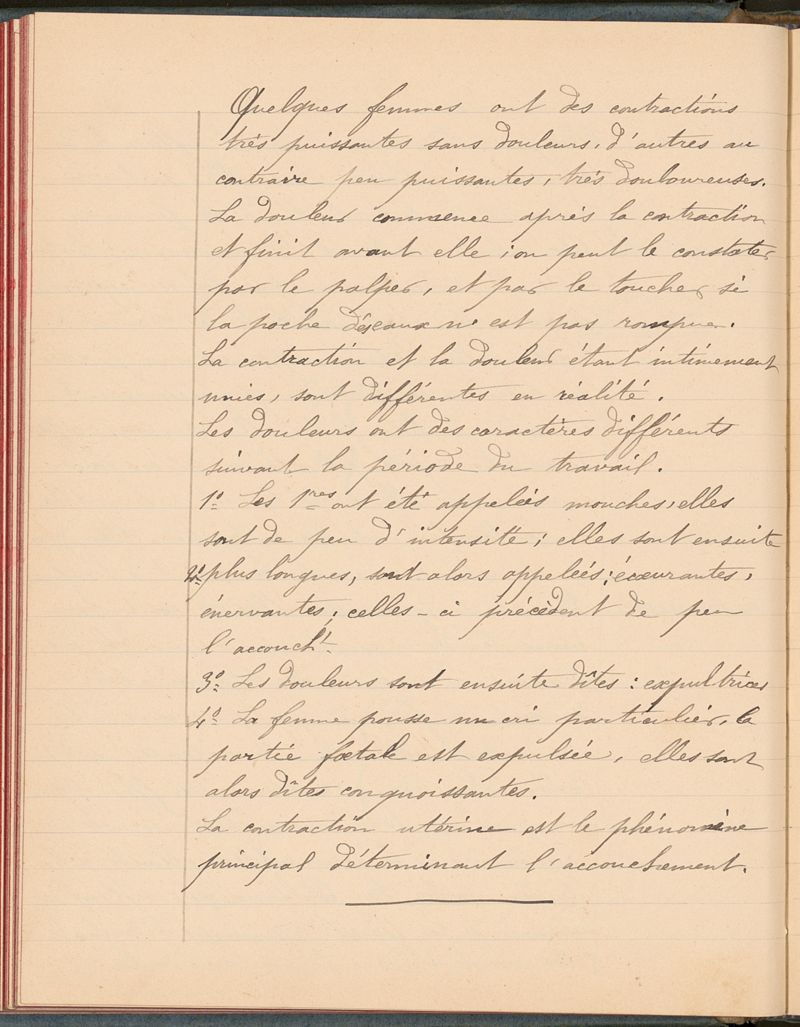 Quelques femmes ont des contractions
très puissantes sans douleurs, d'autres au
contraire peu puissantes, très douloureuses.
La douleur commence après la contraction
et finit avant elle ; on peut le constater
par le palper, et par le toucher si
la poche des eaux n'est pas rompue.
La contraction et la douleur étant intimement
unies, sont différentes en réalité.
Les douleurs ont des caractères différents
suivant la période du travail.
1º Les 1res ont été appelées mouches, elles
sont de peu d'intensité ; elles sont ensuite
2º plus longues, sont alors appelées : écœurantes,
énervantes ; celles-ci précèdent de peu
l'accouch!t
3º Les douleurs sont ensuite dîtes : expultrices
4º La femme pousse un cri particulier, la
partie fœtale est expulsée, elles sont
alors dîtes conquoissantes.
La contraction utérine est le phénomène
principal déterminant l'accouchement.